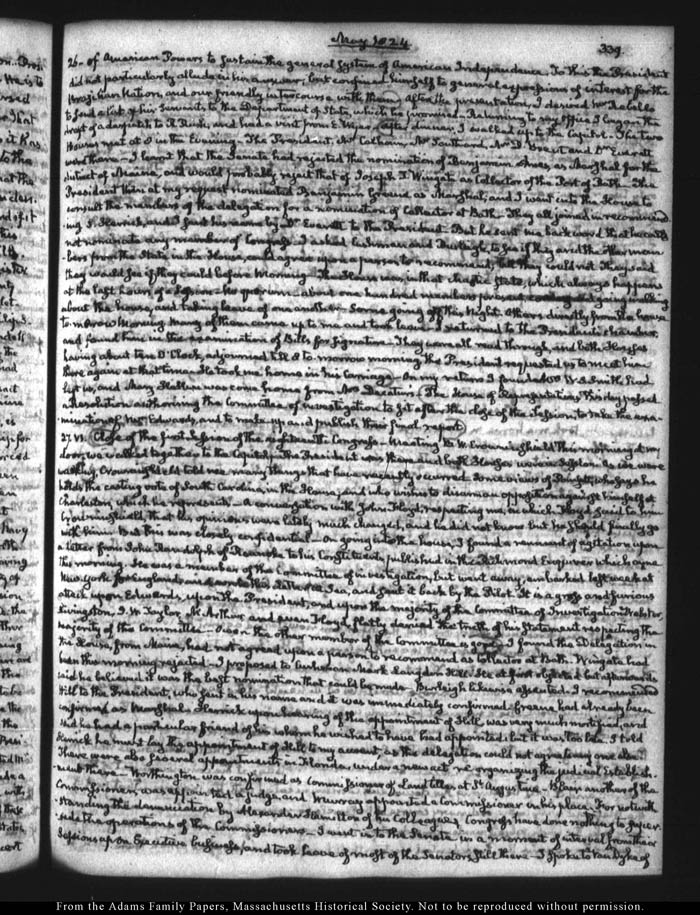 May 1824
339
26 - of American Powers to sustain the general system of American Independence. To this the President
did not particularly allude in his answer, but confined himself to general expressions of interest for the
Brazilian Nation, and our friendly intercourse with them. After the presentation, I desired Mr Rebello
to send a list of his servants to the Department of State, which he promised. Returning to my Office I began the
draft of a despatch to R. Rush, and had a visit from E. Wyer. After dinner I walked up to the Capitol. The two
Houses met at 6 in the Evening. The President, Mr Calhoun, Mr Southard, Mr D. Brent and Dr Everett
were there. I learnt that the Senate had rejected the nomination of Benjamin Ames, as Marshal for the
district of Maine, and would probably reject that of Joseph F. Wingate as Collector of the Port of Bath. The
President then at my request nominated Benjamin Greene as Marshal, and I went into the House to
consult the members of the delegation for a nomination of Collector at Bath. They all joined in recommend
ing E. Herrick, and I sent his name by Dr Everett to the President. But he sent me back word that he could
not nominate any member of Congress. I asked Cushman and Burleigh, to see if they and the other mem
bers from the State in the House, could agree upon a person to recommend, but they could not. They said
they would see if they could before Morning. The House was in that chaotic State, which always happens
at the last hours of a Session. No quorum - about one hundred members present, going walking
about the house, and taking leave of one another. Some going off this Night. Others directly from the house
to-morrow Morning. Many of them came up to me and took leave. I returned to the President's chamber,
and found him in the examination of Bills for signature. They were all read through, and both Houses
having about ten O'Clock, adjourned till 6 to-morrow morning the President requested us to meet him
there again at that time. He took me home in his Carriage. On my return I found Mr W. S. Smith had
left us, and Mary Hellen was come home from Mrs Decatur's. The House of Representatives this day passed
a Resolution authorizing the Committee of investigation to sit after the close of the Session, to take the exa-
mination of Mr Edwards, and to make up and publish their final report.
27. VI. Close of the first Session of the eighteenth Congress. Meeting Mr W. Crowninshield this morning at my
door, we walked together to the Capitol. The President was there and both Houses were in Session. As we were
walking, Crowninshield told me many things that have recently occurred. Some views of Poinsett, who says he
holds the casting vote of South Carolina, in the House, and who wishes to disarm an opposition against himself at
Charleston, which he represents. A conversation with John Floyd, respecting me, in which Floyd said to him
Crowninshield that his opinions were lately much changed, and he did not know but he should finally go
with him. But this was closely confidential. On going into the house, I found a remnant of agitation upon
a letter from John Randolph of Roanoke to his Constituents, published in the Richmond Enquirer which came
this morning. He was a member of the Committee of investigation, but went away, embarked last week at
New-York for England, and wrote this letter at Sea, and sent it back by the Pilot. It is a gross and furious
attack upon Edwards, upon the President, and upon the majority of the Committee of Investigation. Webster,
Livingston, J. W. Taylor, McArthur and even Floyd, flatly denied the truth of his statement respecting the
majority of this Committee. Owen the other member of the Committee is gone. I found the Delegation in
the House, from Maine, had not agreed upon a person to recommend as Collector at Bath. Wingate had
been this morning rejected. I proposed to Cushman Mark Langdon Hill. He at first objected but afterwards
said he believed it was the best nomination that could be made. Burleigh likewise assented. I recommended
Hill to the President, who sent in his name and it was immediately confirmed. Greene had already been
confirmed as Marshal. Herrick upon hearing of this appointment of Hill, was very much mortified, and
said he had a particular friend of his whom he wished to have had appointed: but it was too late. I told
Herrick he must lay the appointment of Hill to my account, as the delegation could not agree upon one else.
There were also several appointments in Florida under a new act re-organizing the judicial establish-
ment there. Worthington was confirmed as Commissioner of Land titles at St Augustine. Blair another of the
Commissioners, was appointed a judge, and Murray appointed a Commissioner in his place. For notwith-
standing the denunciation by Alexander Hamilton of his Colleagues, Congress have done nothing to super-
sede the operations of the Commissioners. I went in to the Senate in a moment of interval from their
Sessions upon Executive business, and took leave of most of the Senators still there. I spoke to Van Dyke of
From the Adams Family Papers, Massachusetts Historical Society. Not to be reproduced without permission.